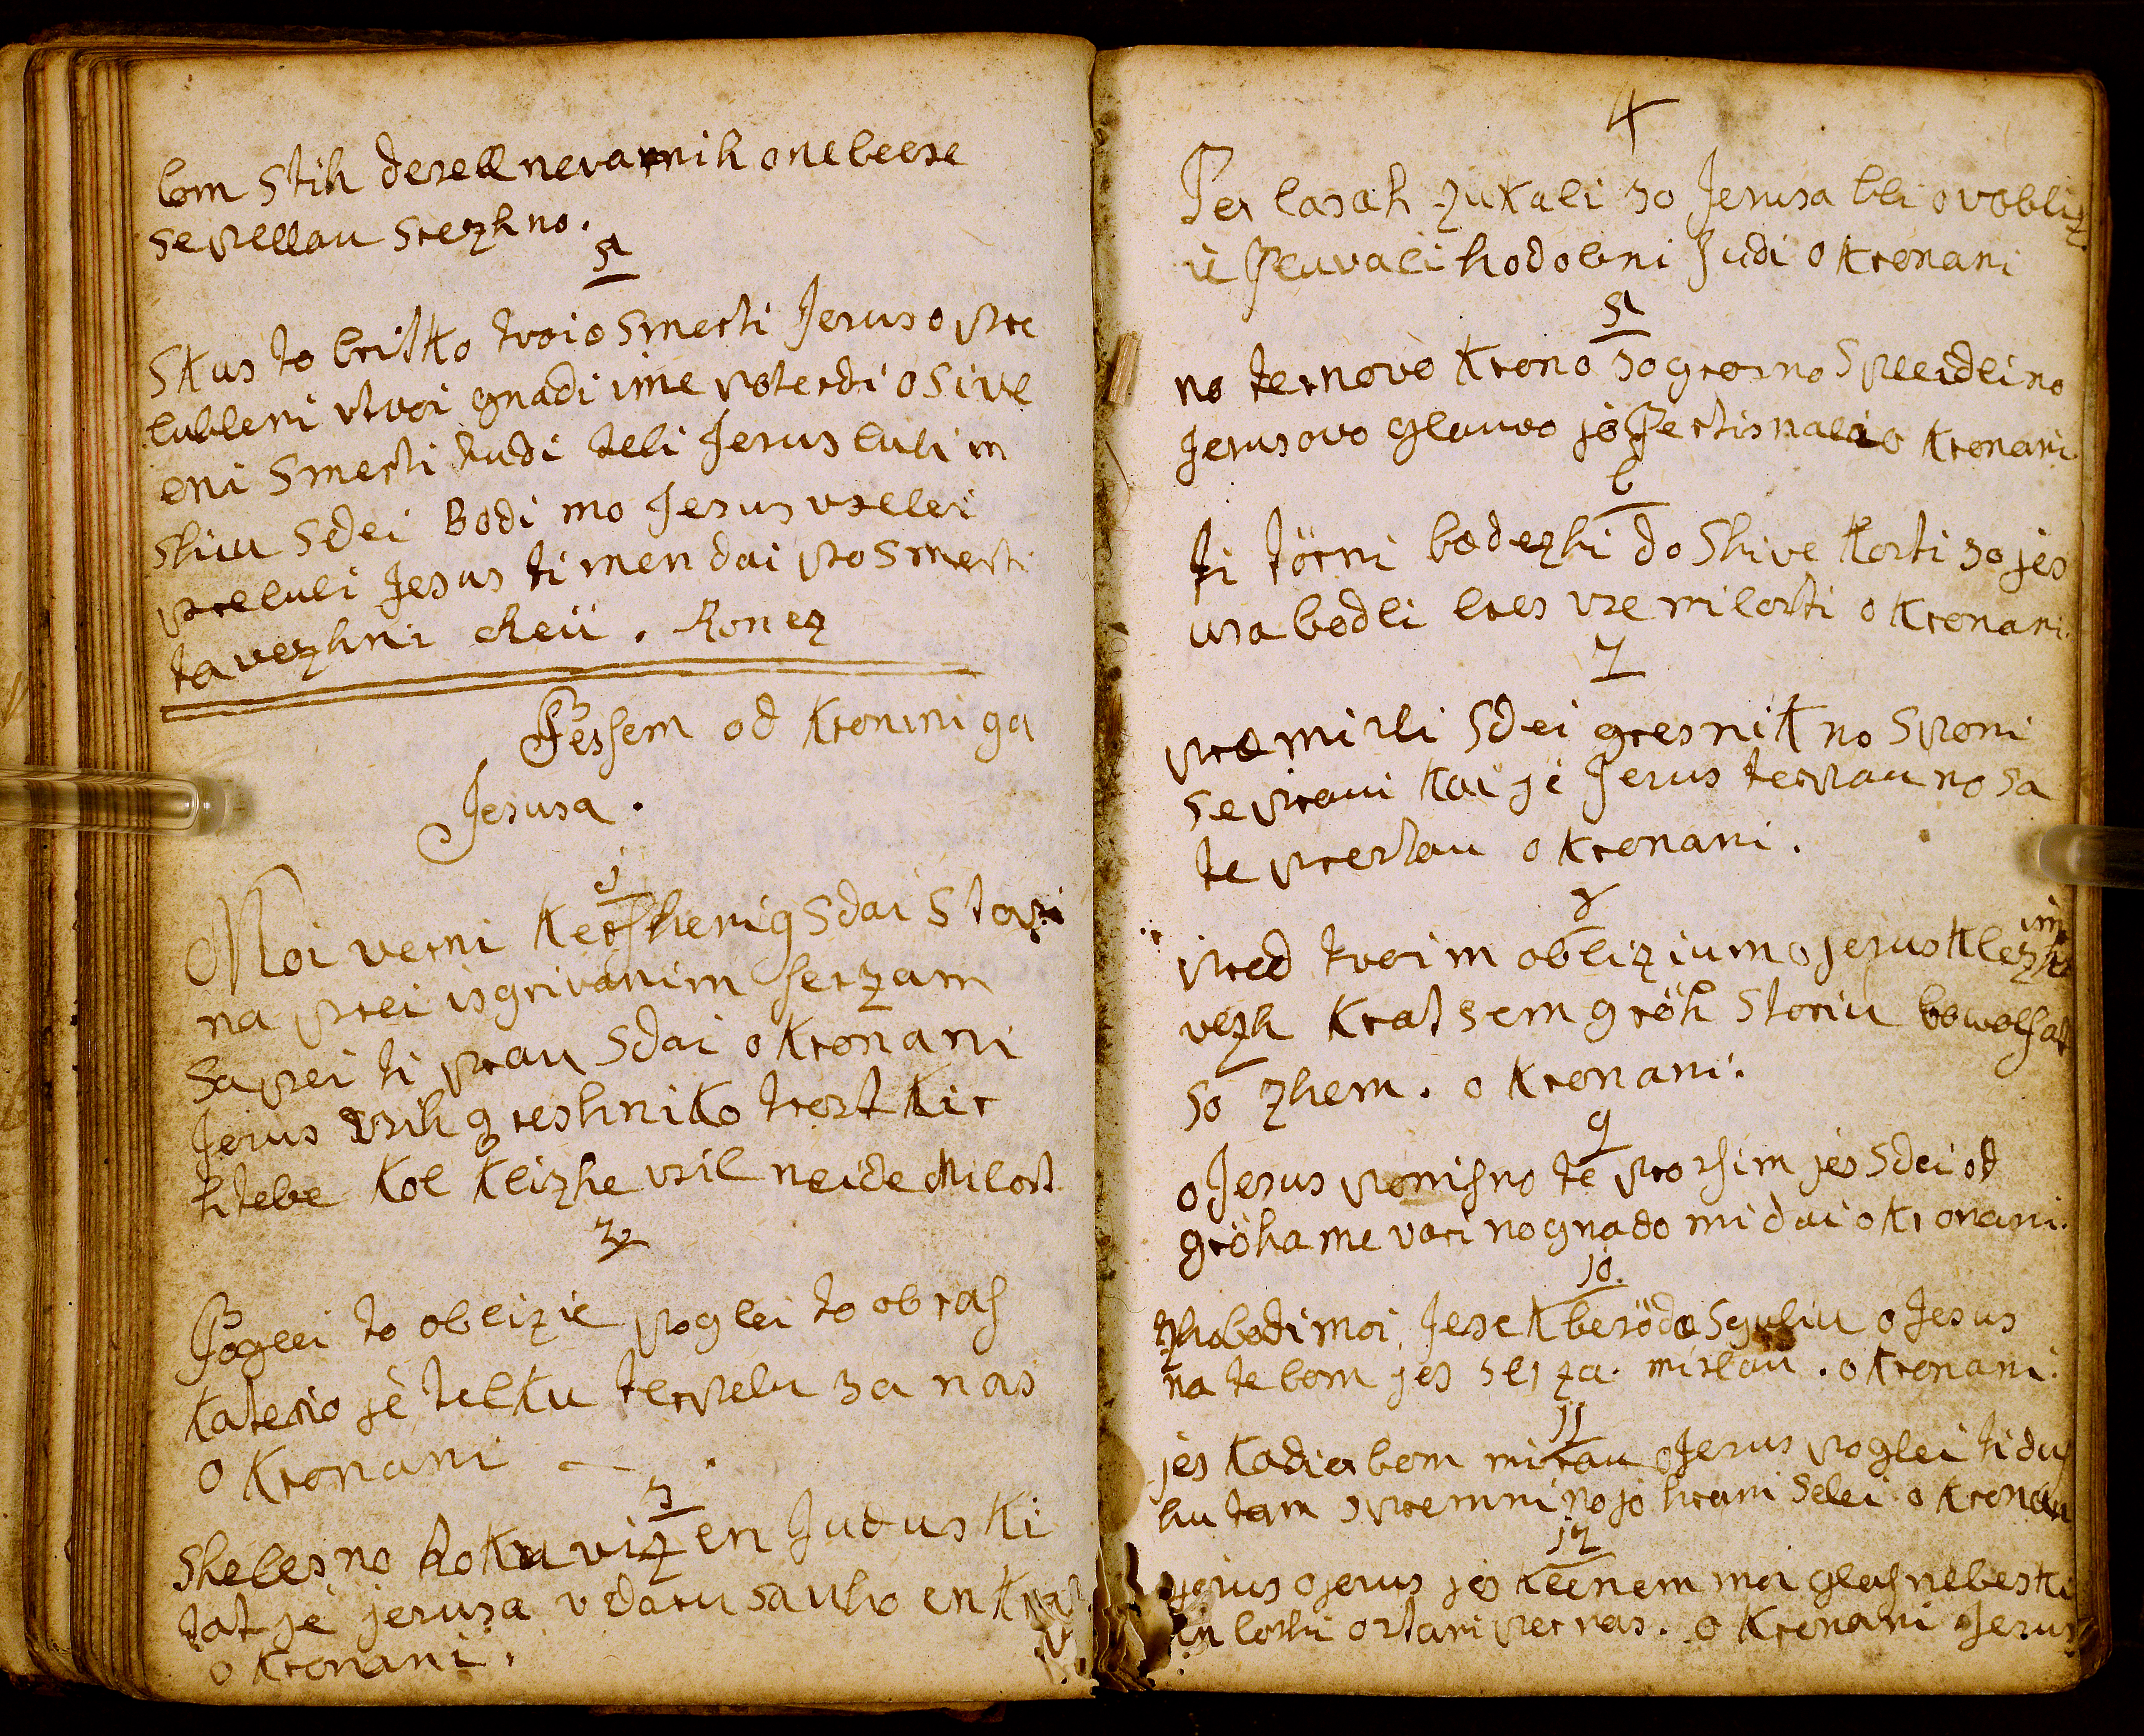 bom stih deseℓℓ nevarnih onebeese
sepellau srezhno.
5
Skus to britko tvoio smerti Jesus o pre
lubleni vtvoi gnadi vme poterdi o sive
oni smerti tudi teli Jesus luli in
shiu sdei Bodi mo Jesus vselei
preluli Jesus ti men dai po smerti
ta vezhni Reiü. Konez
Pessem od Kronini ga
Jesusa.
1
Moi verni Kershenig sdai stopi
na prei isgrivanim serzam
sapei ti prau sdai o Kronani
Jesus vsih greshniko trost Kir
htebe Kol Klizhe vsil neide Milost
2
Poglei to oblizie poglei to obras
Katerio je telku terpelu za nas
o Kronani
3
shelesno Rokauviz en Judus Ki
tat je jesusa vdaru sa uho en
o Kronani.
4
Per lasah zukali so Jesusa bli v obliz
ie Pluvali hodobni Judi o Kronani
5
no ternovo Krono so grosno spleidli no
Jesusovo glauvo jo Pertisnali o Kronani.
6
ti törni bodezhi do shive Kosti so jes
usa bodli bres vse milosti o Kronani.
7
premisli sdei gresnik no sponi
se pravi Kai je Jesus terpau no sa
te prestau o Kronani.
8
pred tvoim oblizium o jesus Klezhim
vezh Krat sem gröh storiu bowolsat
so zhem. o Kronani.
9
o Jesus ponisno te prosim jes sdei od
gröha me vari no gnado mi dai o Kronani.
10.
zhobodi moi Jesek besödo sguliu o Jesus
na te bom jes serza mislau. o Kronani.
11
jes Kadier bom mirau o Jesus poglei ti dus
hu tam spremni no jo hrani selei o Kronani
12
o jesus o jesus jes Klenem moi glas nebeski
lushi ostani per nas. o Kronani Jesus